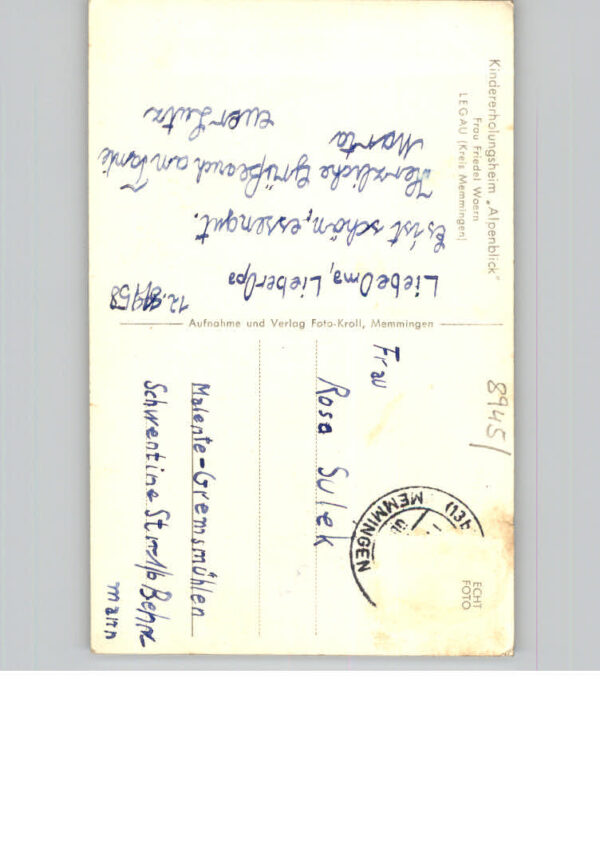 Kindererholungsheim „Alpenblick"
Frau Friedel Waern
LEGAU (Kreis Memmingen)
12. 1958
Liebe Oma, Lieber Opa
Es ist schön, essen gut.
Herzliche Grüße auch an Tante
Marta
euer Lutz
Aufnahme und Verlag Foto-Kroll, Memmingen
8945/
ECHT
FOTO
(13b)
MEMMINGEN
Frau
Rosa Sulek
Malente-Gremsmühlen
Schwentine Str. 1/b Behr
mann